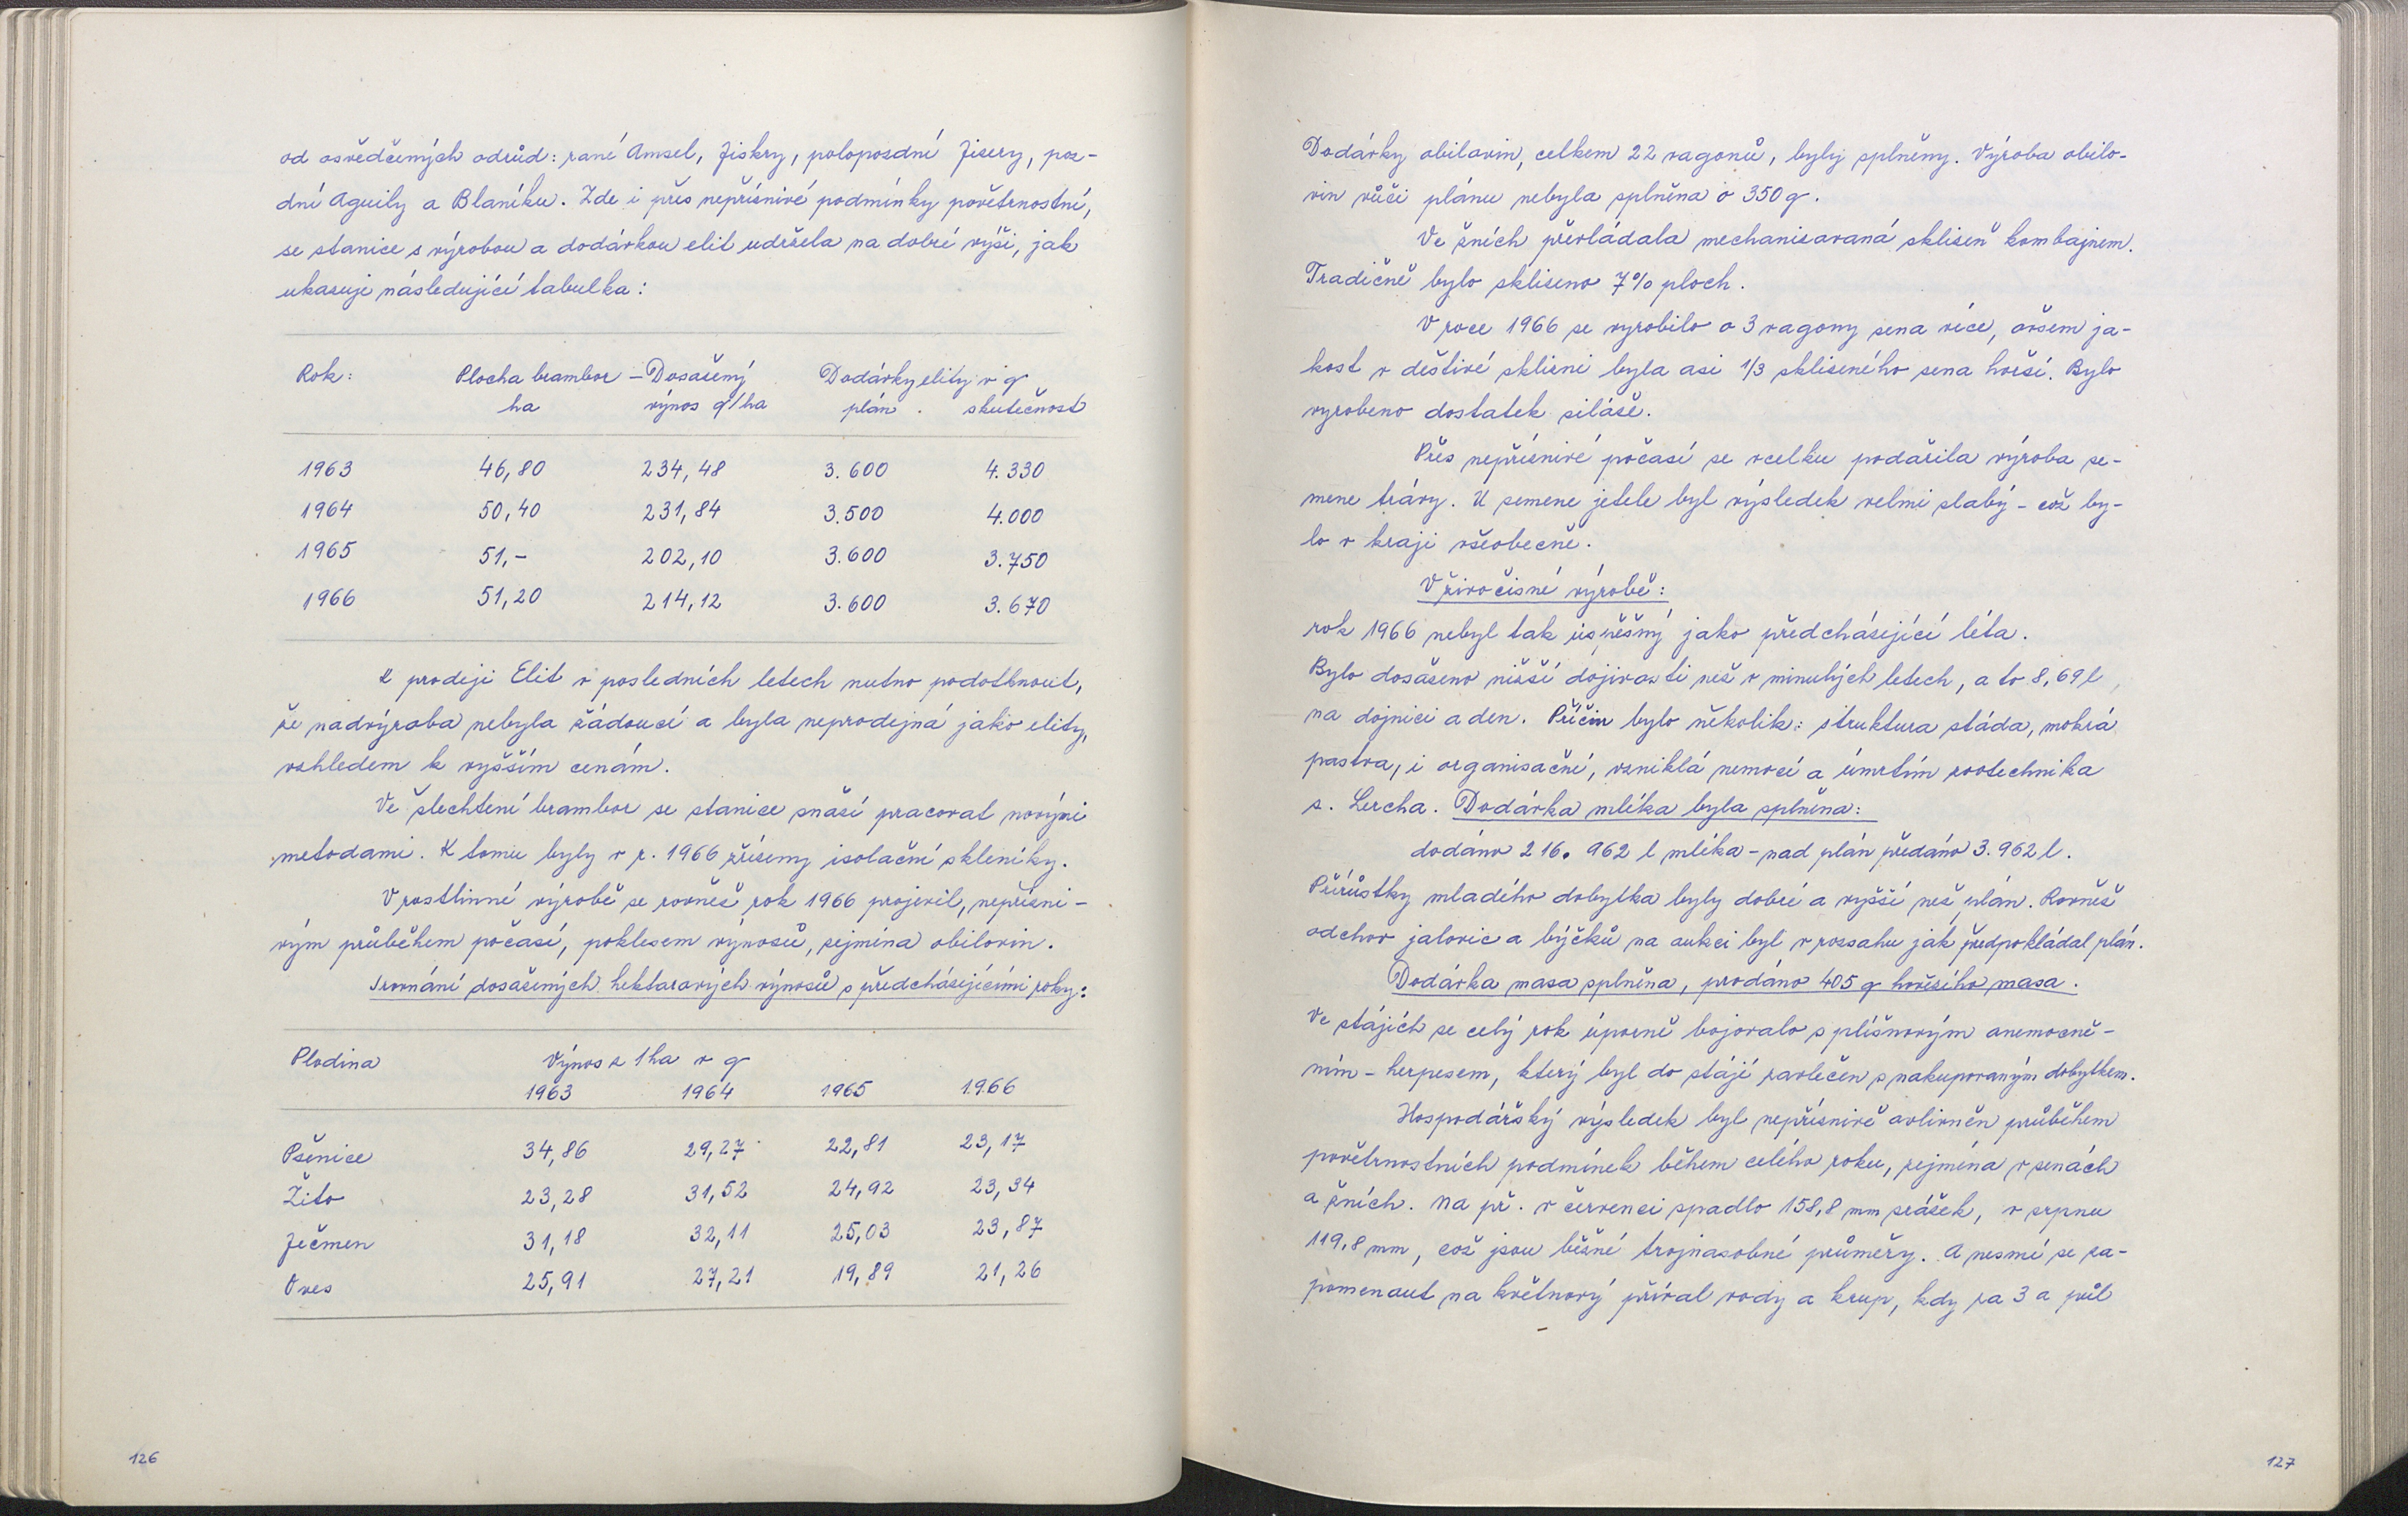 od osvědčených odrůd: rané Amsel, Jiskry, polopozdní Jisery, poz-
dní Aguily a Blaníku. Zde i přes nepříznivé podmínky povětrnostní,
se stanice s výrobou a dodávkou elit udržela na dobré výši, jak
ukazuje následující tabulka:
Rok: Plocha brambor – Dosažený Dodávky elity v q
ha výnos q/ha plán . skutečnost
1963 46,80 234,48 3.600 4.330
1964 50,40 231,84 3.500 4.000
1965 51,- 202,10 3.600 3.750
1966 51,20 214,12 3.600 3.670
K prodeji Elit v posledních letech nutno podotknout,
že nadvýroba nebyla žádoucí a byla neprodejná jako elity,
vzhledem k vyšším cenám.
Ve šlechtění brambor se stanice snaží pracovat novými
metodami. K tomu byly v r. 1966 zřízeny isolační skleníky.
V rostlinné výrobě se rovněž rok 1966 projevil, nepřízni-
vým průběhem počasí, poklesem výnosů, zejména obilovin.
Srovnání dosažených hektarových výnosů s předcházejícími roky:
Plodina Výnos z 1 ha v q
1963 1964 1965 1966
Pšenice 34,86 29,27 22,81 23,17
Žito 23,28 31,52 24,92 23,34
Ječmen 31,18 32,11 25,03 23,87
Oves 25,91 27,21 19,89 21,26
126
Dodávky obilovin, celkem 22 vagonů, byly splněny. Výroba obilo-
vin vůči plánu nebyla splněna o 350 q.
Ve žních převládala mechanisovaná sklizeň kombajnem.
Tradičně bylo sklizeno 7% ploch.
V roce 1966 se vyrobilo o 3 vagony sena více, ovšem ja-
kost v deštivé sklizni byla asi 1/3 sklizeného sena horší. Bylo
vyrobeno dostatek siláže.
Přes nepříznivé počasí se vcelku podařila výroba se-
mene trávy. U semene jetele byl výsledek velmi slabý - což by-
lo v kraji všeobecné.
V živočisné výrobě:
rok 1966 nebyl tak úspěšný jako předcházející léta.
Bylo dosaženo nižší dojivosti než v minulých letech, a to 8,69 l
na dojnici a den. Příčin bylo několik: struktura stáda, mokrá
pastva, i organisační, vzniklá nemocí a úmrtím zootechnika
s. Lercha. Dodávka mléka byla splněna:
dodáno 216. 962 l mléka - nad plán předáno 3.962 l.
Přírůstky mladého dobytka byly dobré a vyšší než plán. Rovněž
odchov jalovic a býčků na aukci byl v rozsahu jak předpokládal plán.
Dodávka masa splněna, prodáno 405 q hovězího masa.
Ve stájích se celý rok úporně bojovalo s plísňovým onemocně-
ním - herpesem, který byl do stájí zavlečen s nakupovaným dobytkem.
Hospodářský výsledek byl nepříznivě ovlivněn průběhem
povětrnostních podmínek během celého roku, zejména v senách
a žních. Na př. v červenci spadlo 158,8 mm srážek, v srpnu
119,8 mm, což jsou běžné trojnasobné průměry. A nesmí se za-
pomenout na květnový příval vody a krup, kdy za 3 a půl
127